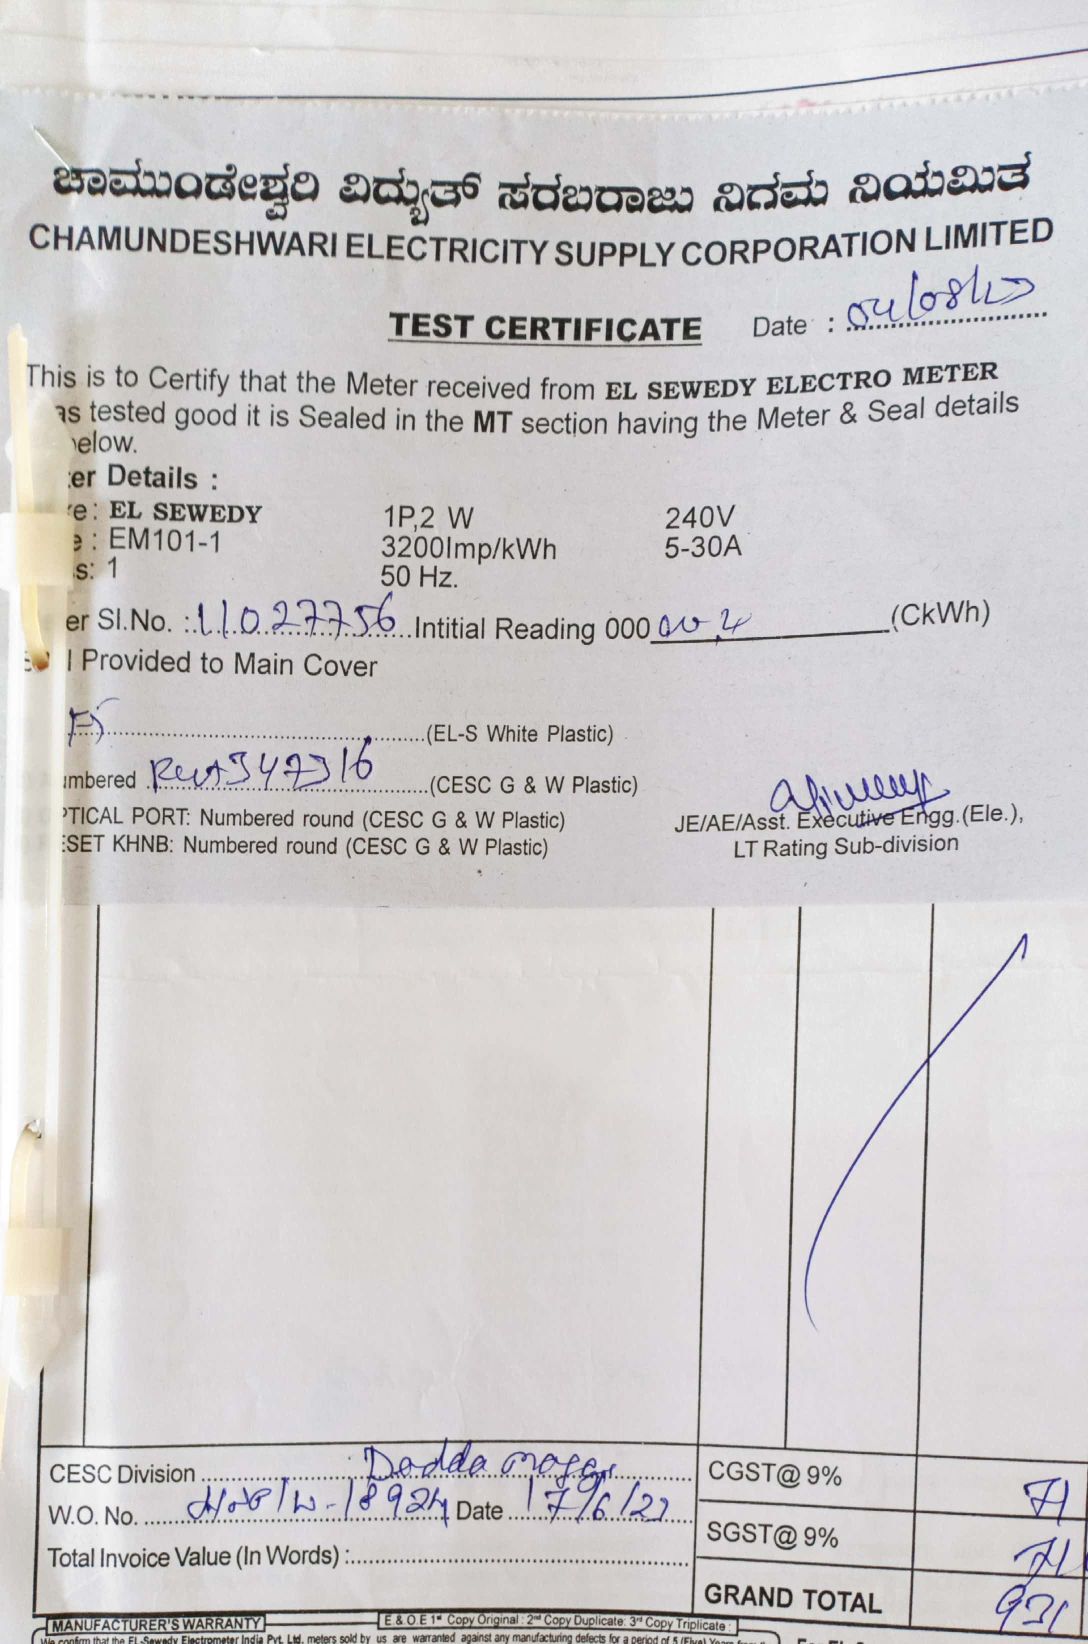 ಚಾಮುಂಡೇಶ್ವರಿ ವಿದ್ಯುತ್ ಸರಬರಾಜು ನಿಗಮ ನಿಯಮಿತ
CHAMUNDESHWARI ELECTRICITY SUPPLY CORPORATION LIMITED
TEST CERTIFICATE Date :
This is to Certify that the Meter received from EL SEWEDY ELECTRO METER
as tested good it is Sealed in the MT section having the Meter & Seal details
elow.
er Details :
e: EL SEWEDY 1P,2 W 240V
e : EM101-1 3200Imp/kWh 5-30A
s: 1 50 Hz.
er Sl.No. : 11027756 Intitial Reading 000 (CkWh)
l Provided to Main Cover
(EL-S White Plastic)
umbered (CESC G & W Plastic)
PTICAL PORT: Numbered round (CESC G & W Plastic)
ESET KHNB: Numbered round (CESC G & W Plastic)
JE/AE/Asst. Executive Engg.(Ele.),
LT Rating Sub-division
CESC Division Dodda
W.O. No. Date 17/6/22
Total Invoice Value (In Words) :
CGST@ 9% 71
SGST@ 9% 71
GRAND TOTAL 931
MANUFACTURER'S WARRANTY
E & O E 1st Copy Original : 2nd Copy Duplicate: 3rd Copy Triplicate :
We confirm that the EL-Sewedy Electrometer India Pvt. Ltd. meters sold by us are warranted against any manufacturing defects for a period of 5 (Five) Years